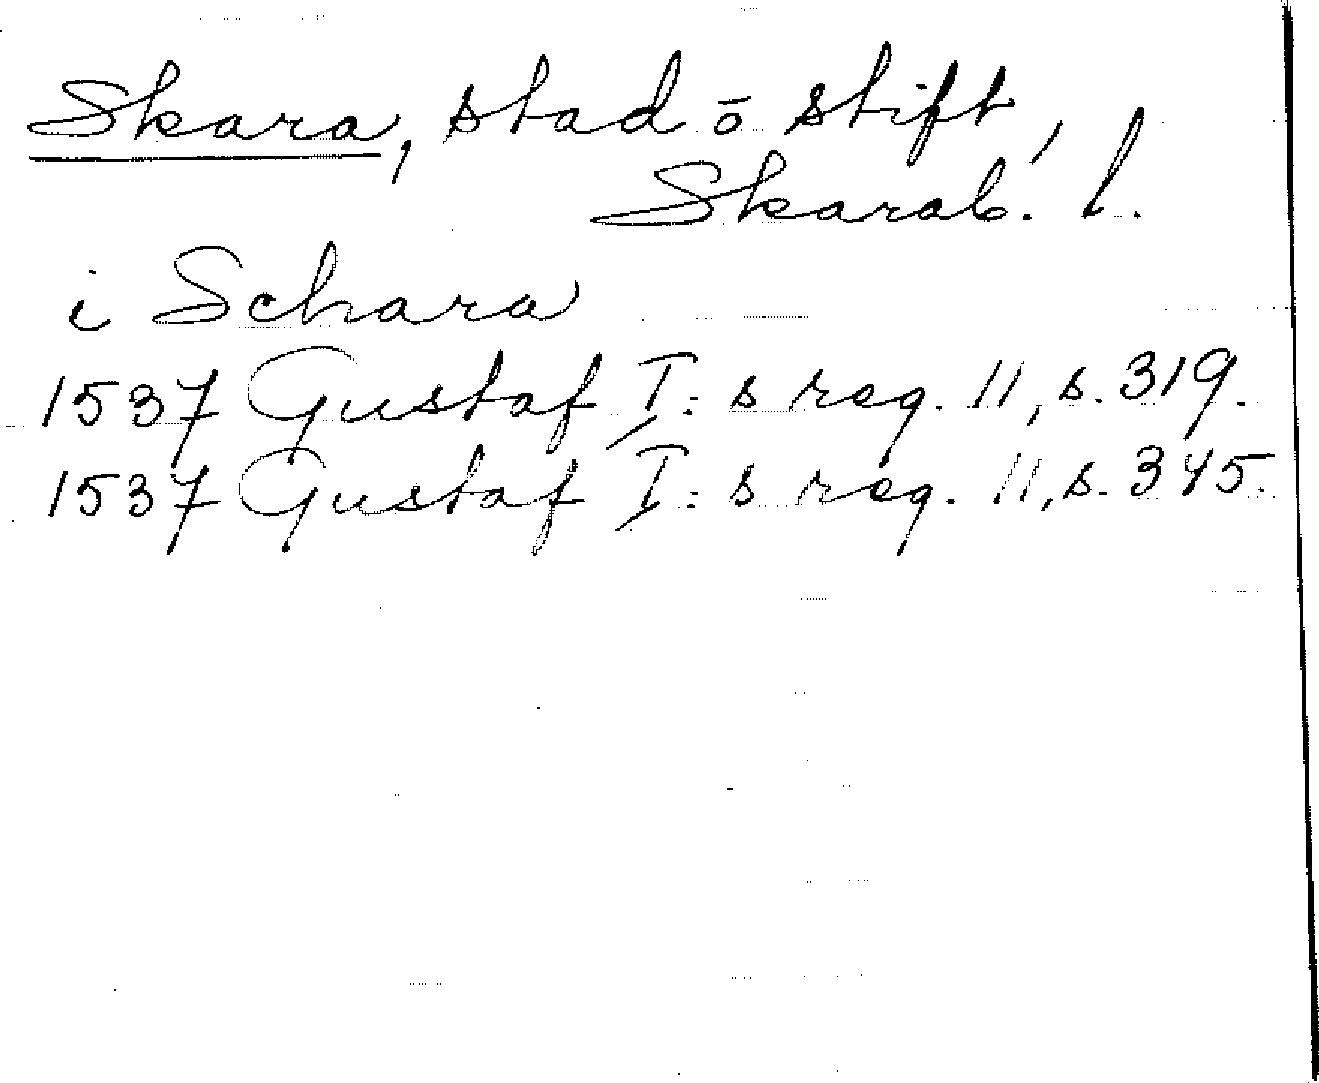 Skara, stad ō stift,
Skarab. l.
i Schara
1537 Gustaf I:s reg. 11, s. 319.
1537 Gustaf I:s reg. 11, s. 345.